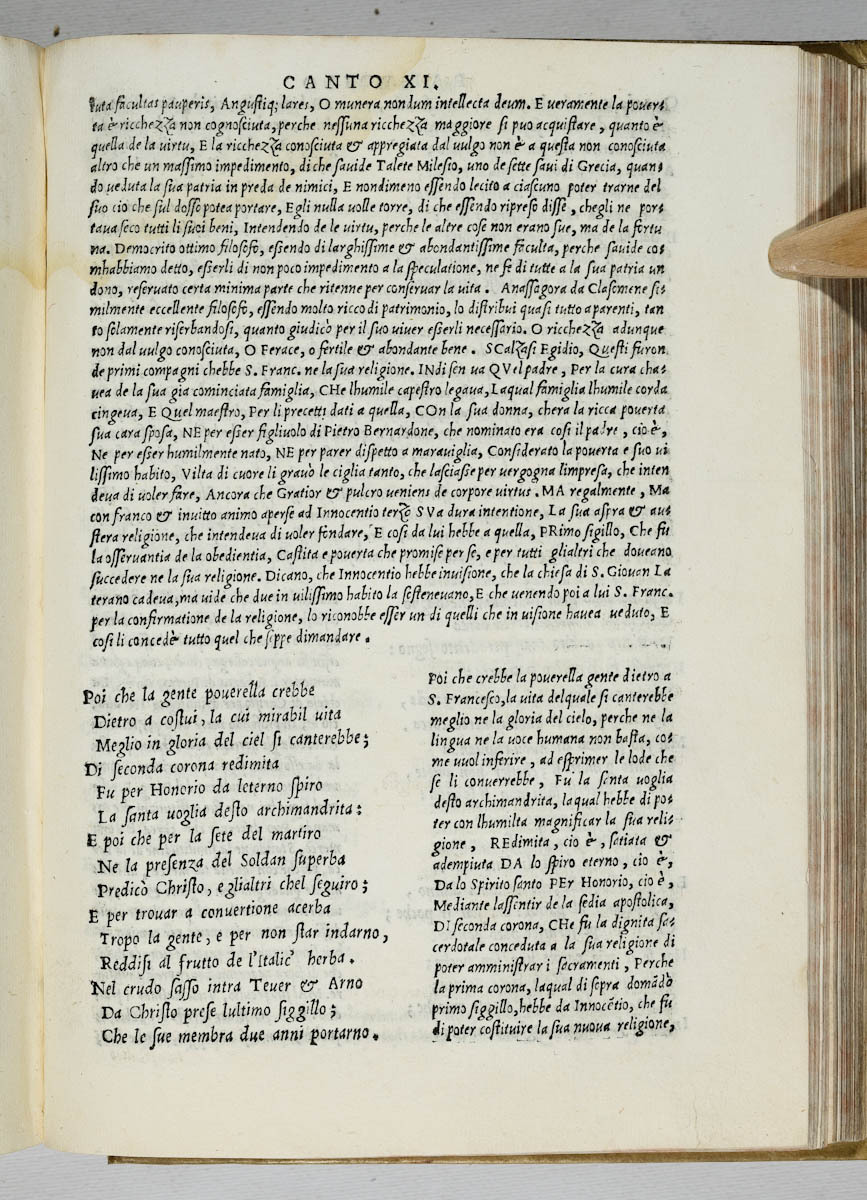 CANTO XI.
tuta facultas pauperis, Angustiq; lares, O munera nondum intellecta deum. E veramente la pover⸗
ta è ricchezza non cognosciuta, perche nessuna ricchezza maggiore si puo acquistare, quanto è
quella de la virtu, E la ricchezza conosciuta & appregiata dal vulgo non è a questa non conosciuta
altro che un massimo impedimento, di che savide Talete Milesio, uno de sette savi di Grecia, quan⸗
do veduta la sua patria in preda de nimici, E nondimeno essendo lecito a ciascuno poter trarne del
suo cio che sul dosso potea portare, Egli nulla volle torre, di che essendo ripreso disse, chegli ne por⸗
tava seco tutti li suoi beni, Intendendo de le virtu, perche le altre cose non erano sue, ma de la fortu
na. Democrito ottimo filosofo, essendo di larghissime & abondantissime faculta, perche savide co⸗
mhabbiamo detto, esserli di non poco impedimento a la speculatione, ne fè di tutte a la sua patria un
dono, reservato certa minima parte che ritenne per conservar la vita. Anassagora da Clasemene si⸗
milmente eccellente filosofo, essendo molto ricco di patrimonio, lo distribui quasi tutto a parenti, tan
to solamente riserbandosi, quanto giudicò per il suo viver esserli necessario. O ricchezza adunque
non dal vulgo conosciuta, O Ferace, o fertile & abondante bene. SCalzasi Egidio, Questi furon
de primi compagni chebbe S. Franc. ne la sua religione. INdi sen va QVel padre, Per la cura cha⸗
vea de la sua gia cominciata famiglia, CHe lhumile capestro legava, Laqual famiglia lhumile corda
cingeva, E Quel maestro, Per li precetti dati a quella, COn la sua donna, chera la ricca poverta
sua cara sposa, NE per esser figliuolo di Pietro Bernardone, che nominato era cosi il padre, cio è,
Ne per esser humilmente nato, NE per parer dispetto a maraviglia, Considerato la poverta e suo vi
lissimo habito, Vilta di cuore li gravò le ciglia tanto, che lasciasse per vergogna limpresa, che inten
deva di voler fare, Ancora che Gratior & pulcro veniens de corpore virtus. MA regalmente, Ma
con franco & invitto animo aperse ad Innocentio terzo SVa dura intentione, La sua aspra & au⸗
stera religione, che intendeva di voler fondare, E cosi da lui hebbe a quella, PRimo sigillo, Che fu
la osservantia de la obedientia, Castita e poverta che promise per se, e per tutti glialtri che doveano
succedere ne la sua religione. Dicano, che Innocentio hebbe invisione, che la chiesa di S. Giovan La
terano cadeva, ma vide che due in vilissimo habito la sostenevano, E che venendo poi a lui S. Franc.
per la confirmatione de la religione, lo riconobbe esser un di quelli che in visione havea veduto, E
cosi li concedè tutto quel che seppe dimandare.
Poi che la gente poverella crebbe
Dietro a costui, la cui mirabil vita
Meglio in gloria del ciel si canterebbe;
Di seconda corona redimita
Fu per Honorio da leterno spiro
La santa voglia desto archimandrita:
E poi che per la sete del martiro
Ne la presenza del Soldan superba
Predicò Christo, e glialtri chel seguiro;
E per trovar a convertione acerba
Tropo la gente, e per non star indarno,
Reddissi al frutto de l'Italic' herba.
Nel crudo sasso intra Tever & Arno
Da Christo prese lultimo siggillo;
Che le sue membra due anni portarno.
Poi che crebbe la poverella gente dietro a
S. Francesco, la vita delquale si canterebbe
meglio ne la gloria del cielo, perche ne la
lingua ne la voce humana non basta, co⸗
me vuol inferire, ad esprimer le lode che
se li converrebbe, Fu la santa voglia
desto archimandrita, laqual hebbe di po⸗
ter con lhumilta magnificar la sua reli⸗
gione, REdimita, cio è, satiata &
adempiuta DA lo spiro eterno, cio è,
Da lo Spirito santo PEr Honorio, cio è,
Mediante lassentir de la sedia apostolica,
DI seconda corona, CHe fu la dignita sa⸗
cerdotale conceduta a la sua religione di
poter amministrar i sacramenti, Perche
la prima corona, laqual di sopra domādò
primo siggillo, hebbe da Innocētio, che fu
di poter costituire la sua nuova religione,